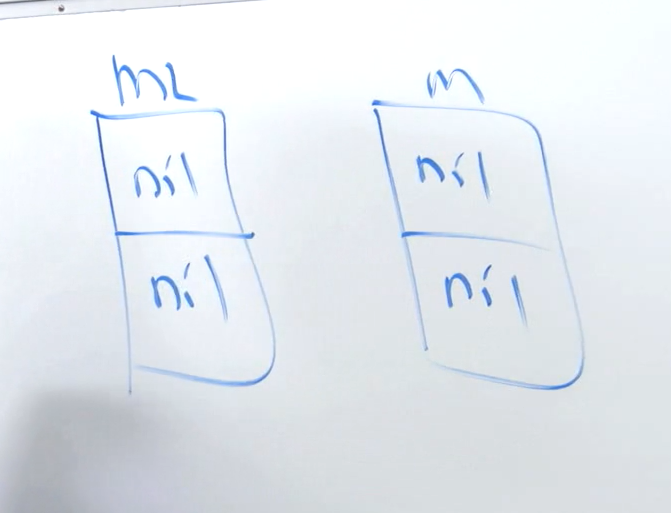 m2 m
nil nil
nil nil